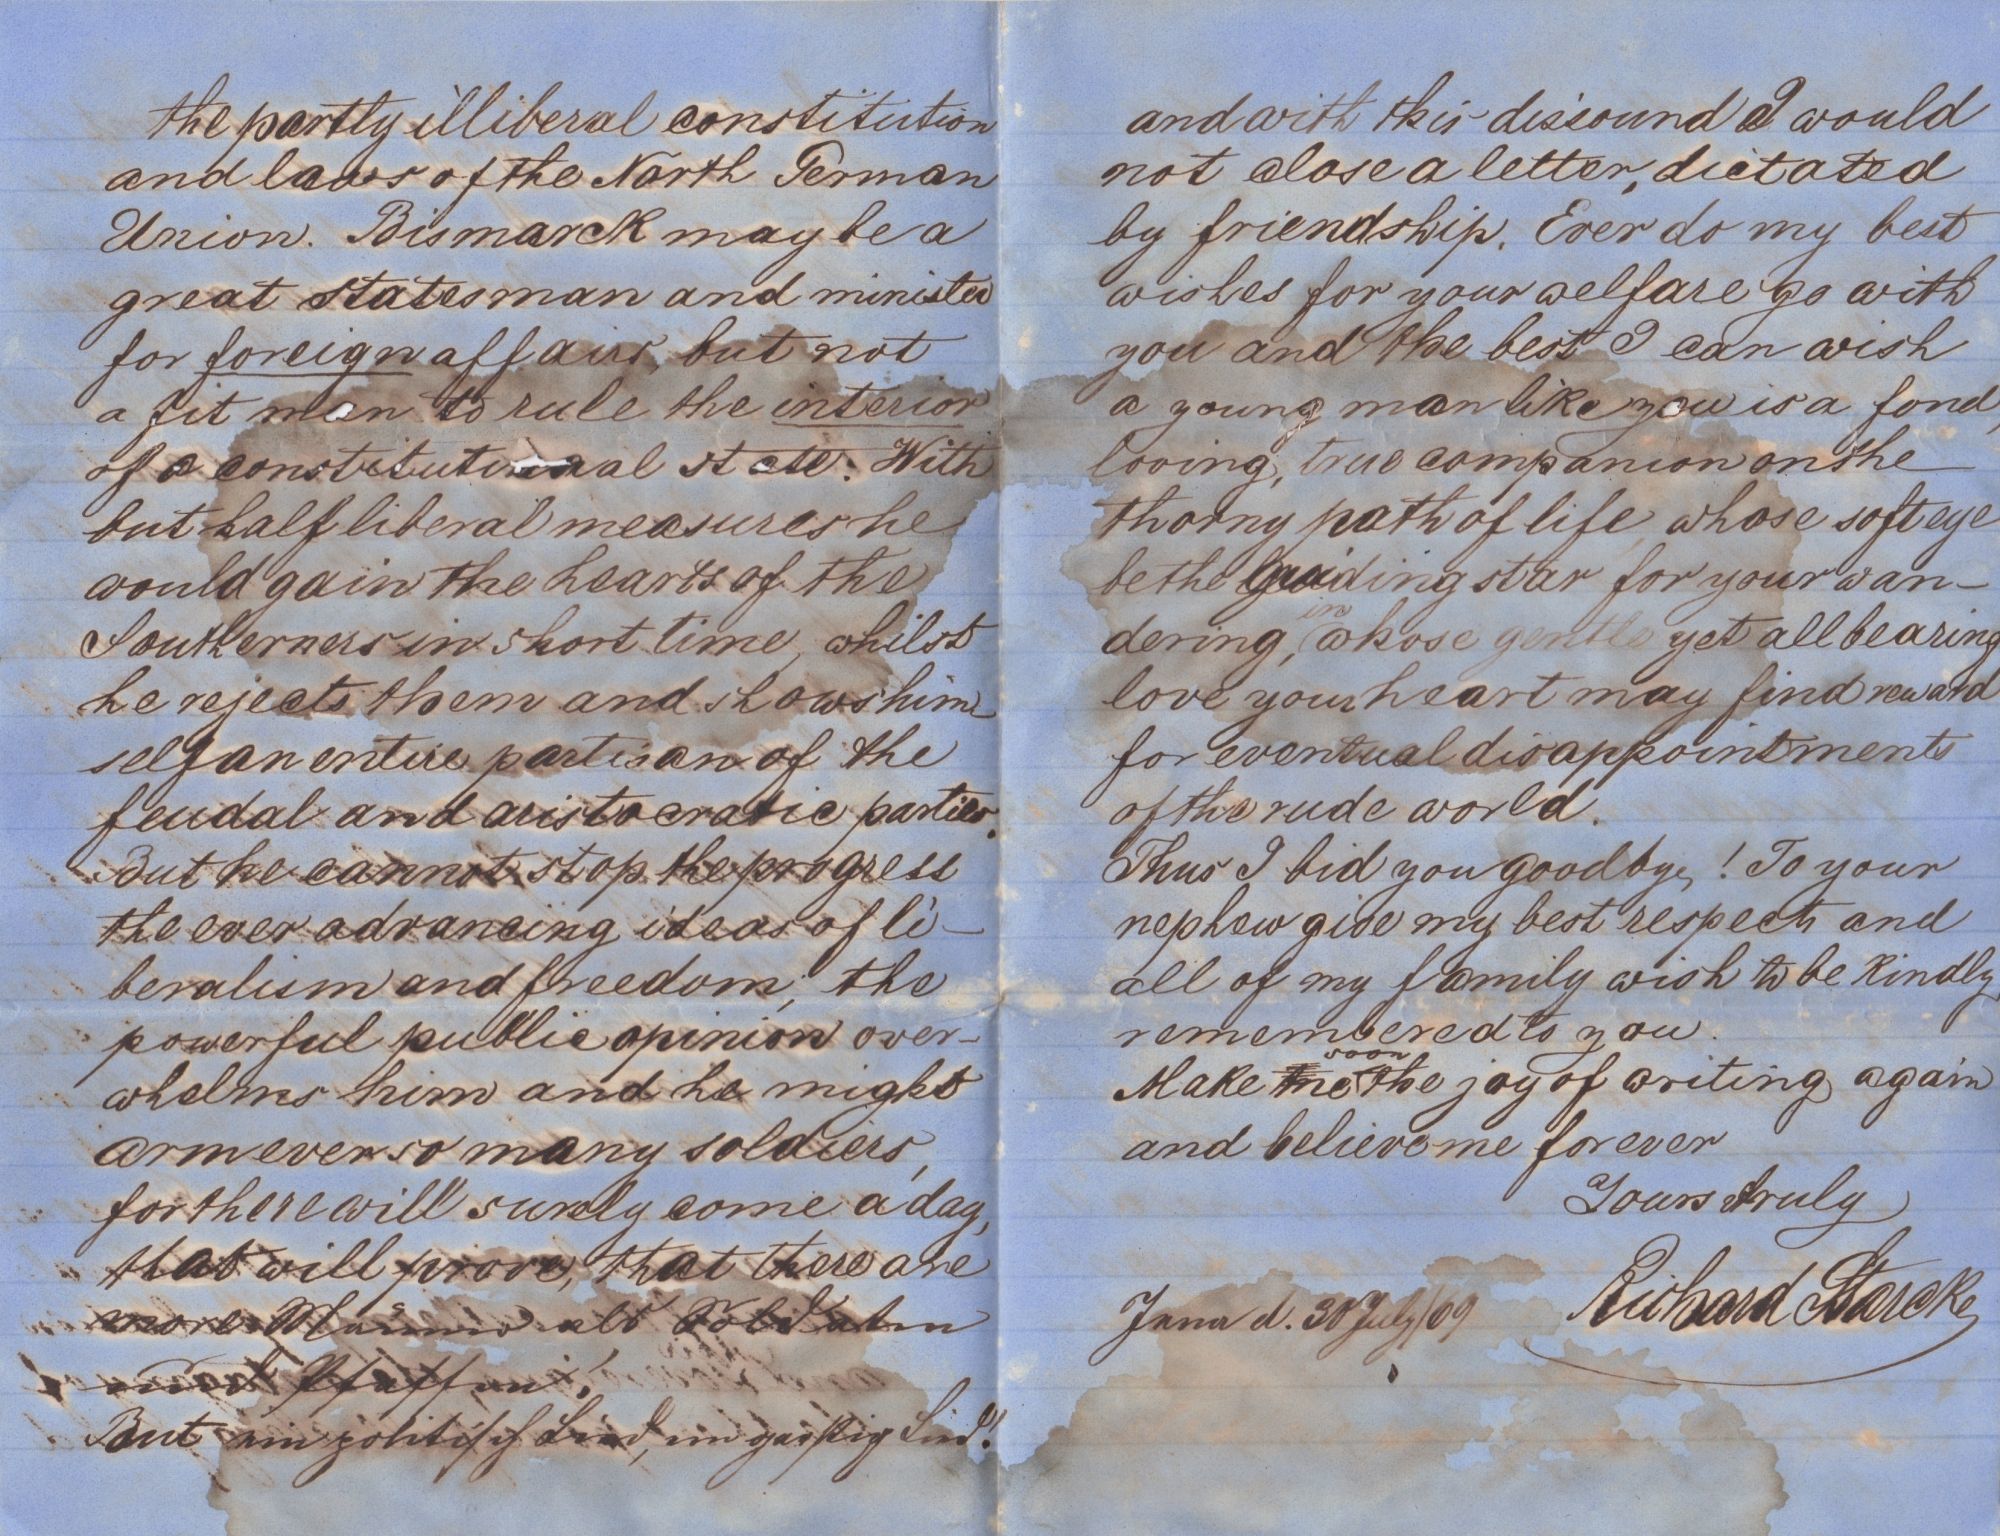 the partly illiberal constitution
and laws of the North German
Union. Bismarck may be a
great statesman and minister
for foreign affairs, but not
a fit man to rule the interior
of a constitutional state. With
but half liberal measures he
would gain the hearts of the
Southerners in short time, whilst
he rejects them and shows him
self an entire partisan of the
feudal and aristocratic parties.
But he cannot stop the progress
the ever advancing ideas of li-
beralism and freedom; the
powerful public opinion over-
whelms him and he might
arm ever so many soldiers,
for there will surely come a day,
that will prove, that there are
more Männer als Soldaten
und Pfaffen!
But ein politisch Lied, ein garstig Lied!
and with this dissound I would
not close a letter, dictated
by friendship. Ever do my best
wishes for your welfare go with
you and the best I can wish
a young man like you is a fond,
loving, true companion on the
thorny path of life, whose soft eye
be the guiding star for your wan-
dering, in whose gentle yet all bearing
love your heart may find reward
for eventual disappointments
of the rude world.
Thus I bid you goodbye! To your
nephew give my best respects and
all of my family wish to be kindly
remembered to you.
Make me soon the joy of writing again
and believe me forever
Yours truly
Richard Starcke
Jena d. 30 July/69